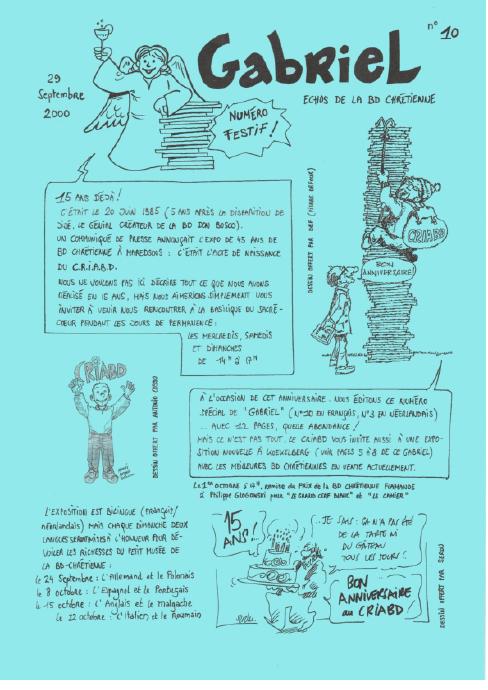 n° 10
Gabriel
29
Septembre
2000
ECHOS DE LA BD CHRÉTIENNE
NUMÉRO
FESTIF !
15 ANS DÉJÀ !
C'ÉTAIT LE 20 JUIN 1985 (5 ANS APRÈS LA DISPARITION DE
JIJÉ, LE GÉNIAL CRÉATEUR DE LA BD DON BOSCO).
UN COMMUNIQUÉ DE PRESSE ANNONÇAIT L'EXPO DE 45 ANS DE
BD CHRÉTIENNE À MAREDSOUS : C'ÉTAIT L'ACTE DE NAISSANCE
DU C.R.I.A.B.D.
NOUS NE VOULONS PAS ICI DÉCRIRE TOUT CE QUE NOUS AVONS
RÉALISÉ EN 15 ANS, MAIS NOUS AIMERIONS SIMPLEMENT VOUS
INVITER À VENIR NOUS RENCONTRER À LA BASILIQUE DU SACRÉ-
COEUR PENDANT LES JOURS DE PERMANENCE :
LES MERCREDIS, SAMEDIS
ET DIMANCHES
DE 14H À 17H
CRIABD
BON
ANNIVERSAIRE !
CRIABD
DESSIN OFFERT PAR ANTONIO COSSU
À L'OCCASION DE CET ANNIVERSAIRE, NOUS ÉDITONS CE NUMÉRO
SPÉCIAL DE "GABRIEL" (N°10 EN FRANÇAIS, N°3 EN NÉERLANDAIS)
... AVEC 12 PAGES, QUELLE ABONDANCE !
MAIS CE N'EST PAS TOUT. LE CRIABD VOUS INVITE AUSSI À UNE EXPO-
SITION NOUVELLE À KOEKELBERG (VOIR PAGES 5 À 8 DE CE GABRIEL)
AVEC LES MEILLEURES BD CHRÉTIENNES EN VENTE ACTUELLEMENT.
Le 1er octobre à 14H, remise du PRIX de la BD CHRÉTIENNE FLAMANDE
à Philippe GLOGOWSKI pour "LE GRAND CERF BLANC" et "LE CAHIER"
L'EXPOSITION EST BILINGUE (FRANÇAIS/
NÉERLANDAIS) MAIS CHAQUE DIMANCHE DEUX
LANGUES SERONT MISES À L'HONNEUR POUR DÉ-
VOILER LES RICHESSES DU PETIT MUSÉE DE
LA BD-CHRÉTIENNE :
le 24 Septembre : L'Allemand et le Polonais
le 8 octobre : L'Espagnol et le Portugais
le 15 octobre : L'Anglais et le malgache
le 22 octobre : L'Italien et le Roumain
15
ANS !
...JE SAIS : ÇA N'A PAS ÉTÉ
DE LA TARTE NI
DU GÂTEAU
TOUS LES JOURS !
BON
ANNIVERSAIRE
au CRIABD
DESSIN OFFERT PAR SERDU